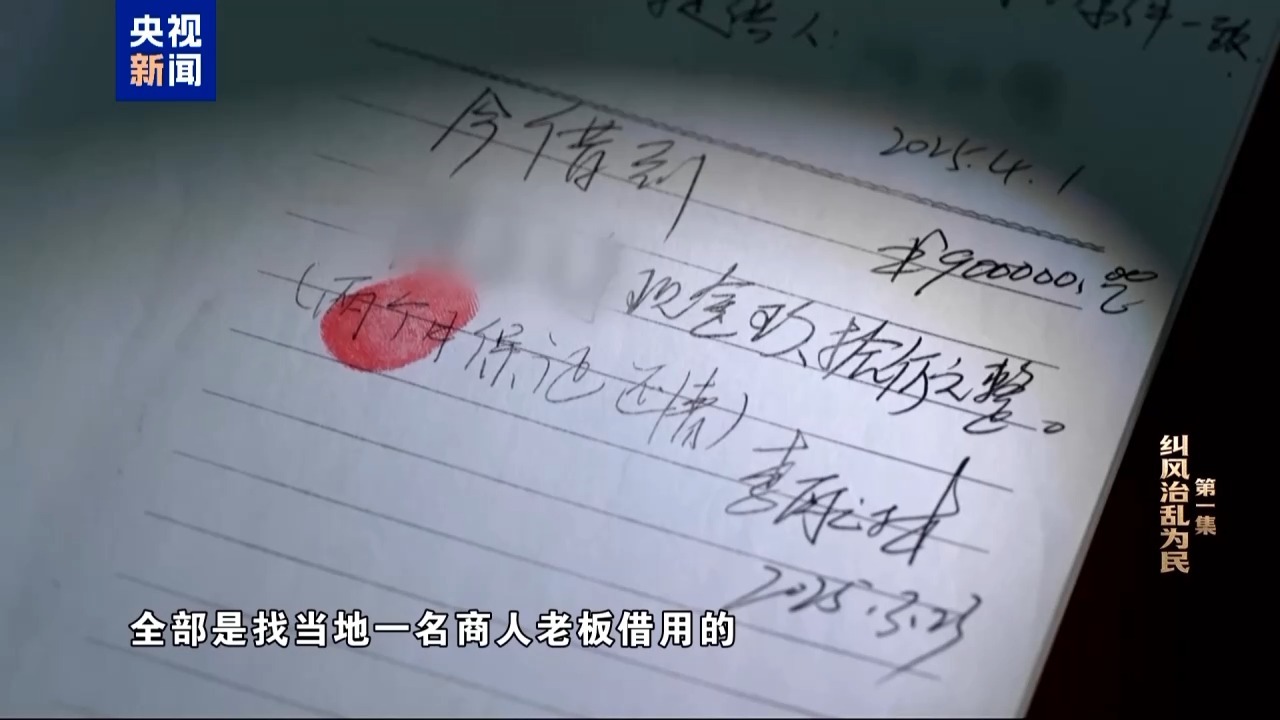 央视
新闻
提供人:
2025.4.1
今借到
¥900000.00
现金玖拾万元整。
(两个月保证还清)
2025.3.23
全部是找当地一名商人老板借用的
第一集
纠风治乱为民